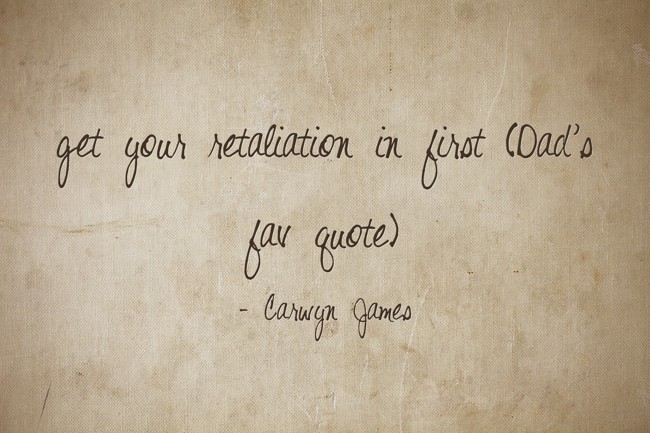 get your retaliation in first (Dad's
fav quote)
- Carwyn James